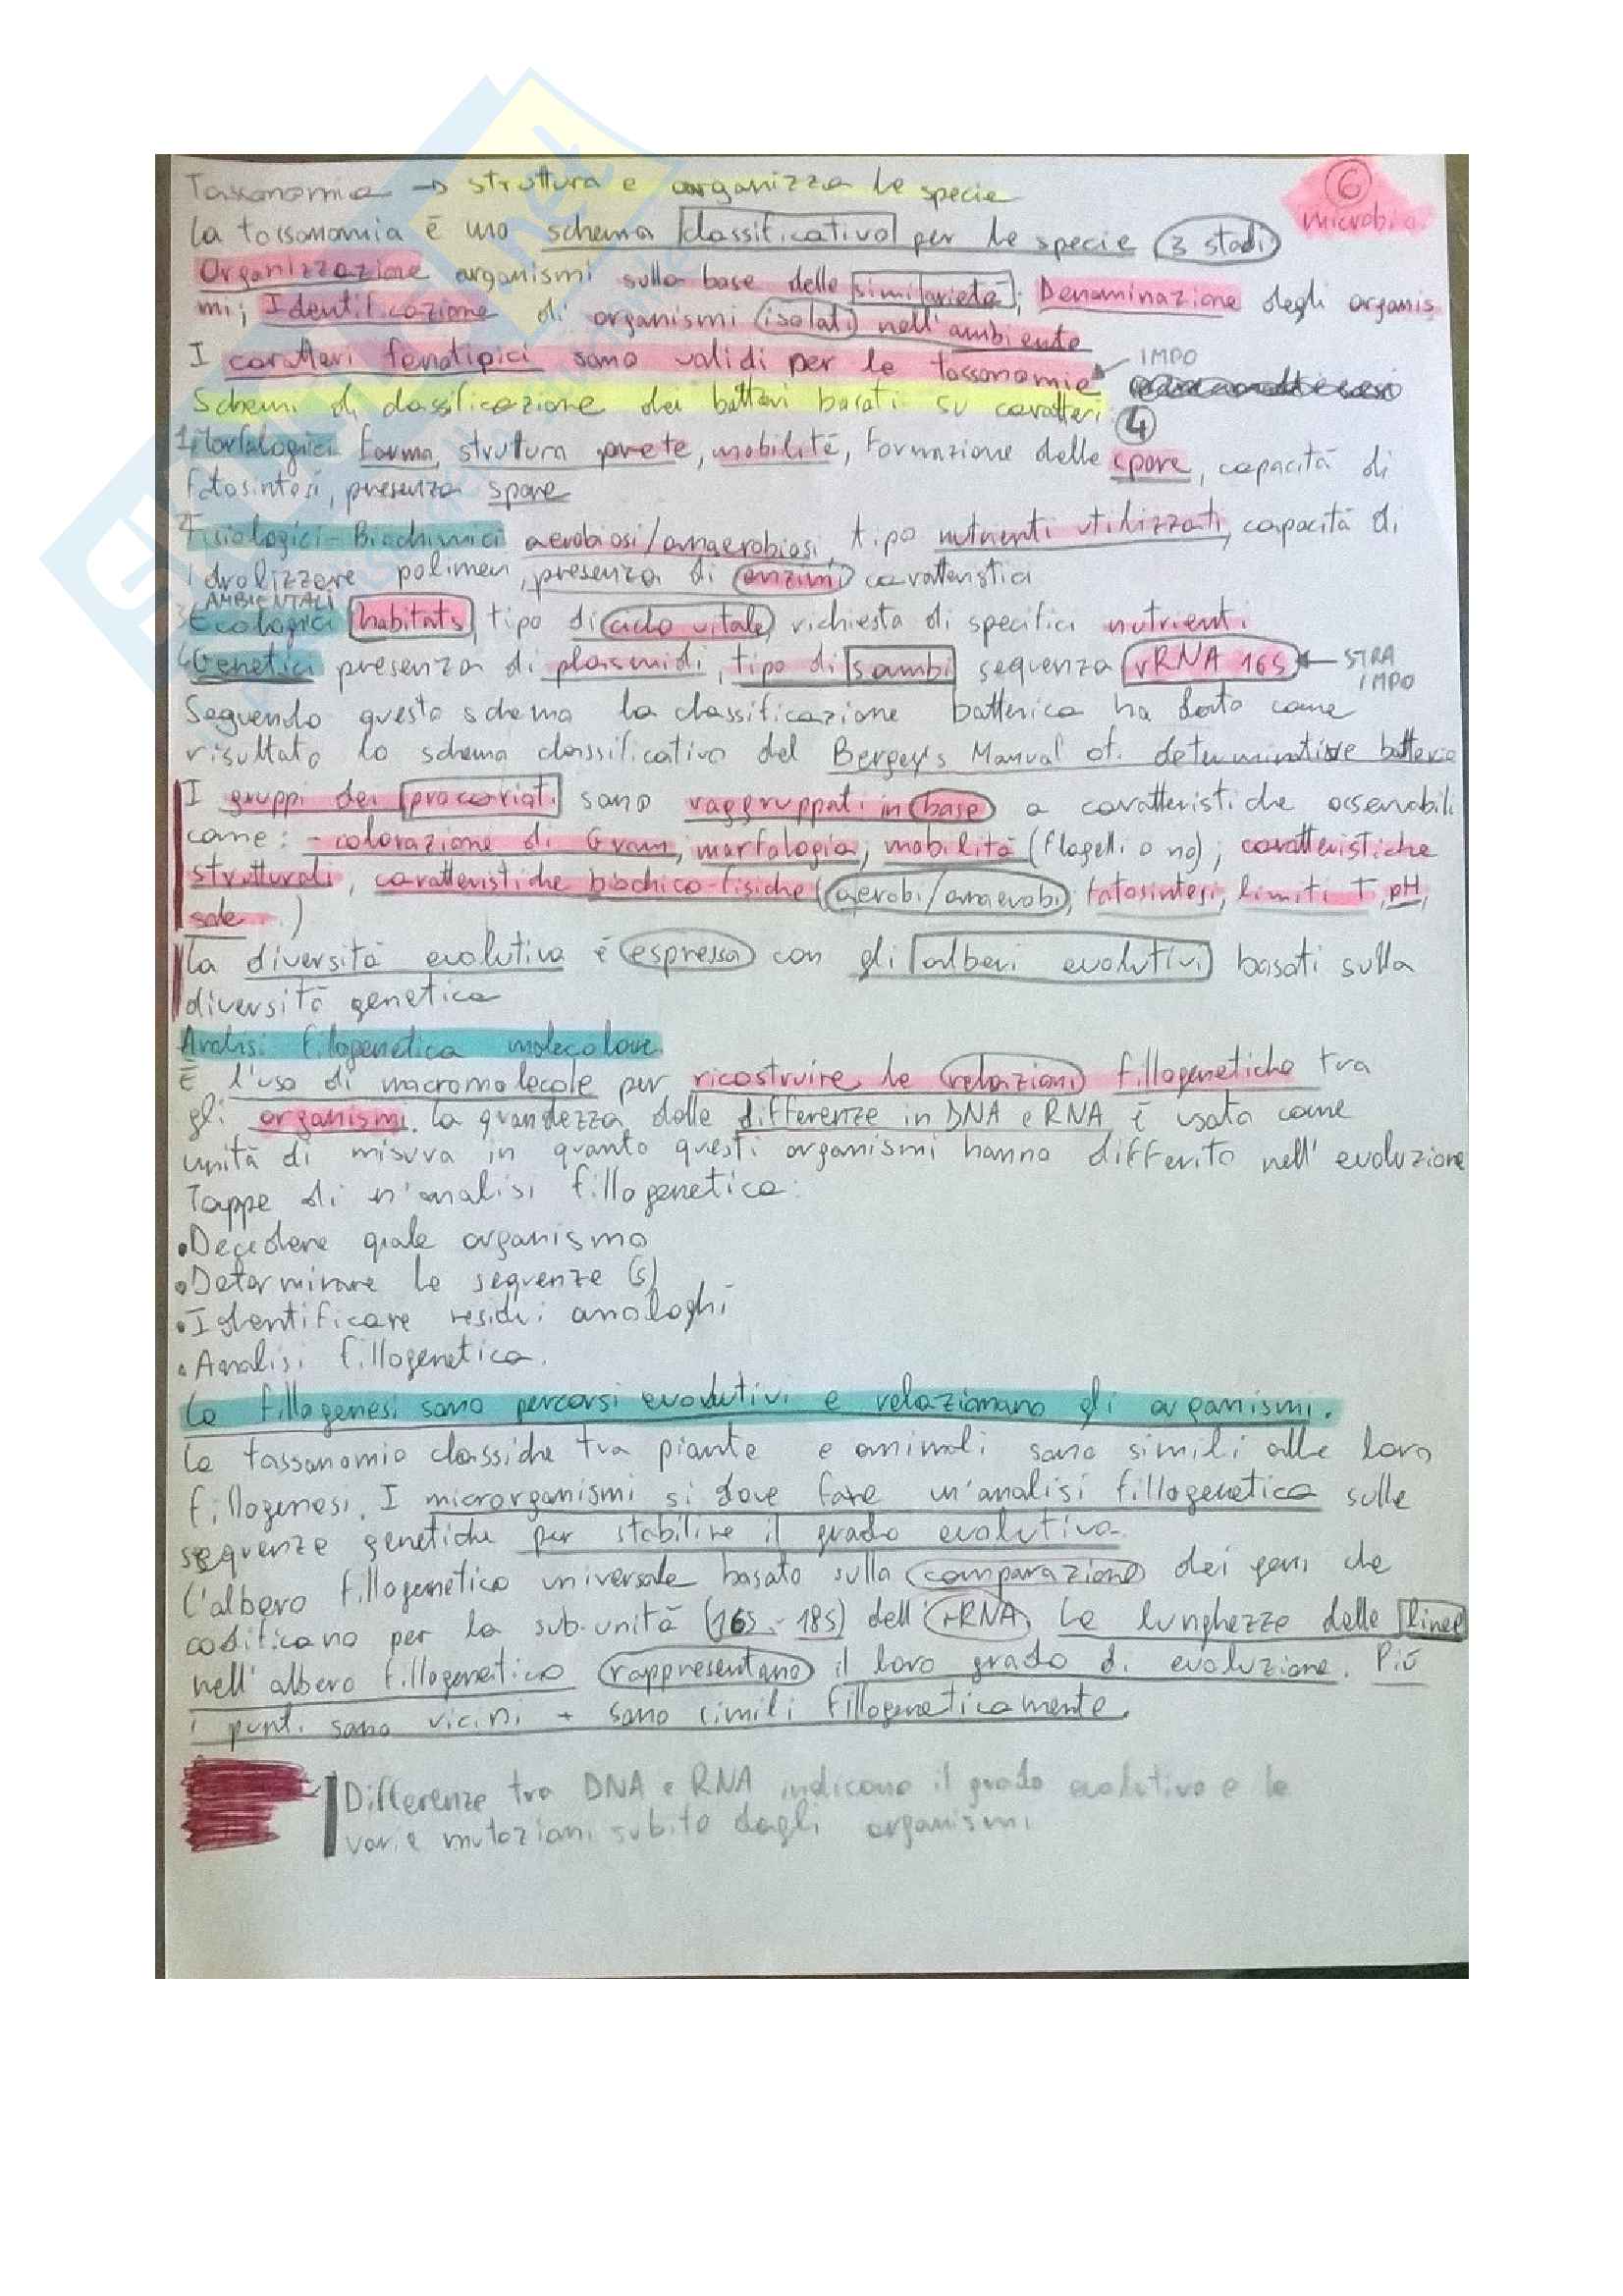 Tassonomia → struttura e organizza le specie
6
microbio
La tassonomia è uno schema classificativo per le specie (3 stadi)
Organizzazione organismi sulla base delle similarietà; Denominazione degli organis
mi; Identificazione di organismi (isolati) nell'ambiente
I caratteri fenotipici sono validi per le tassonomie
IMPO
Schemi di classificazione dei batteri basati su caratteri:
4
1 Morfologici forma, struttura parete, mobilità, formazione delle spore, capacità di
fotosintesi, presenza spore
2 Fisiologici-Biochimici aerobiosi/anaerobiosi, tipo nutrienti utilizzati, capacità di
idrolizzare polimeri, presenza di enzimi caratteristici
AMBIENTALI
3 Ecologici habitats, tipo di ciclo vitale, richiesta di specifici nutrienti
4 Genetici presenza di plasmidi, tipo di scambi sequenza rRNA 16S ← STRA
IMPO
Seguendo questo schema la classificazione batterica ha dato come
risultato lo schema classificativo del Bergey's Manual of determinative batterio
I gruppi dei procarioti sono raggruppati in base a caratteristiche osservabili
come: - colorazione di Gram, morfologia, mobilità (flagelli o no); caratteristiche
strutturali, caratteristiche biochico-fisiche (aerobi/anaerobi, fotosintesi, limiti T, pH,
sale..)
La diversità evolutiva è espressa con gli alberi evolutivi basati sulla
diversità genetica
Analisi filogenetica molecolare
È l'uso di macromolecole per ricostruire le relazioni fillogenetiche tra
gli organismi. La grandezza dalle differenze in DNA e RNA è usata come
unità di misura in quanto questi organismi hanno differito nell'evoluzione
Tappe di n'analisi fillogenetica:
• Decidere quale organismo
• Determinare le sequenze (s)
• Identificare residui analoghi
• Analisi fillogenetica.
Le fillogenesi sono percorsi evolutivi e relazionano gli organismi.
Le tassonomie classiche tra piante e animali sono simili alle loro
fillogenesi. I microrganismi si deve fare un'analisi fillogenetica sulle
sequenze genetiche per stabilire il grado evolutivo
L'albero fillogenetico universale basato sulla comparazione dei geni che
codificano per la sub.unità (16S - 18S) dell'rRNA. Le lunghezze delle linee
nell'albero fillogenetico rappresentano il loro grado di evoluzione. Più
i punti sono vicini + sono simili fillogeneticamente.
Differenze tra DNA e RNA indicano il grado evolutivo e le
varie mutazioni subito dagli organismi